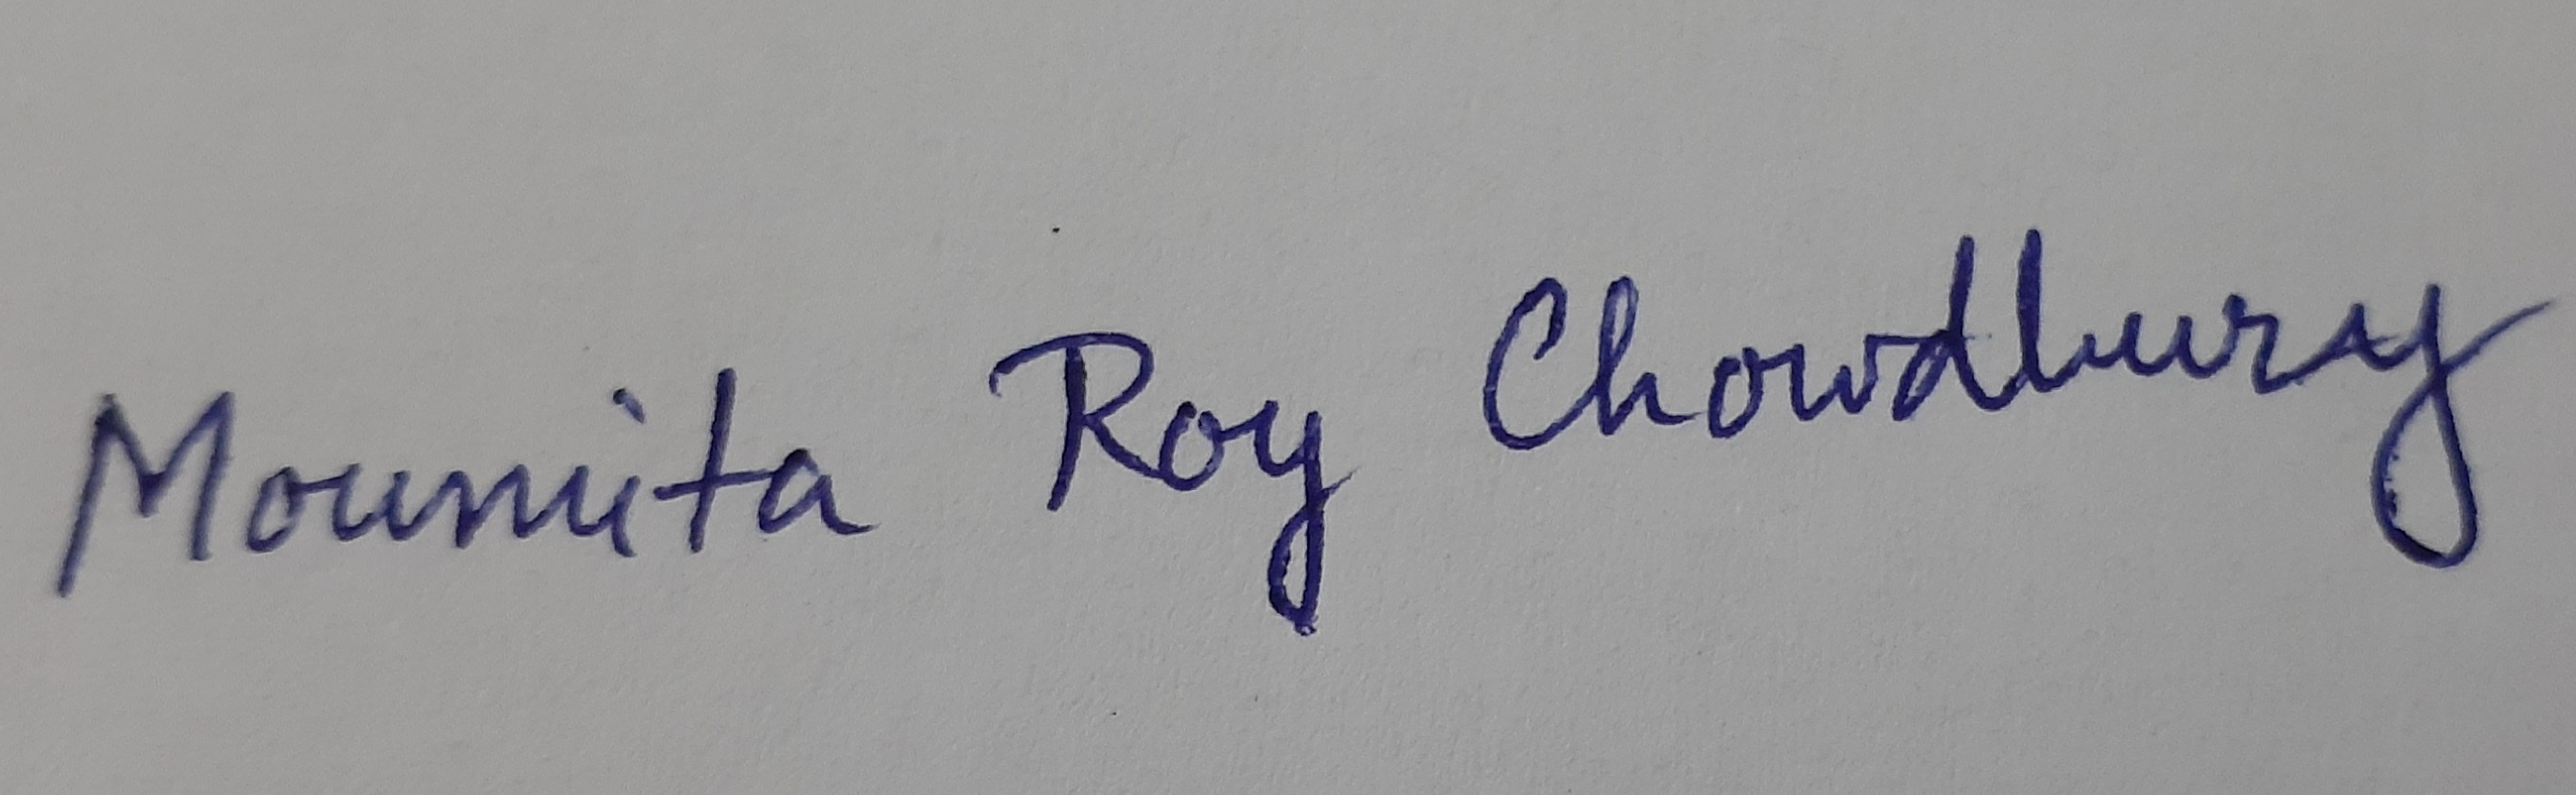 Moumita Roy Chowdhury